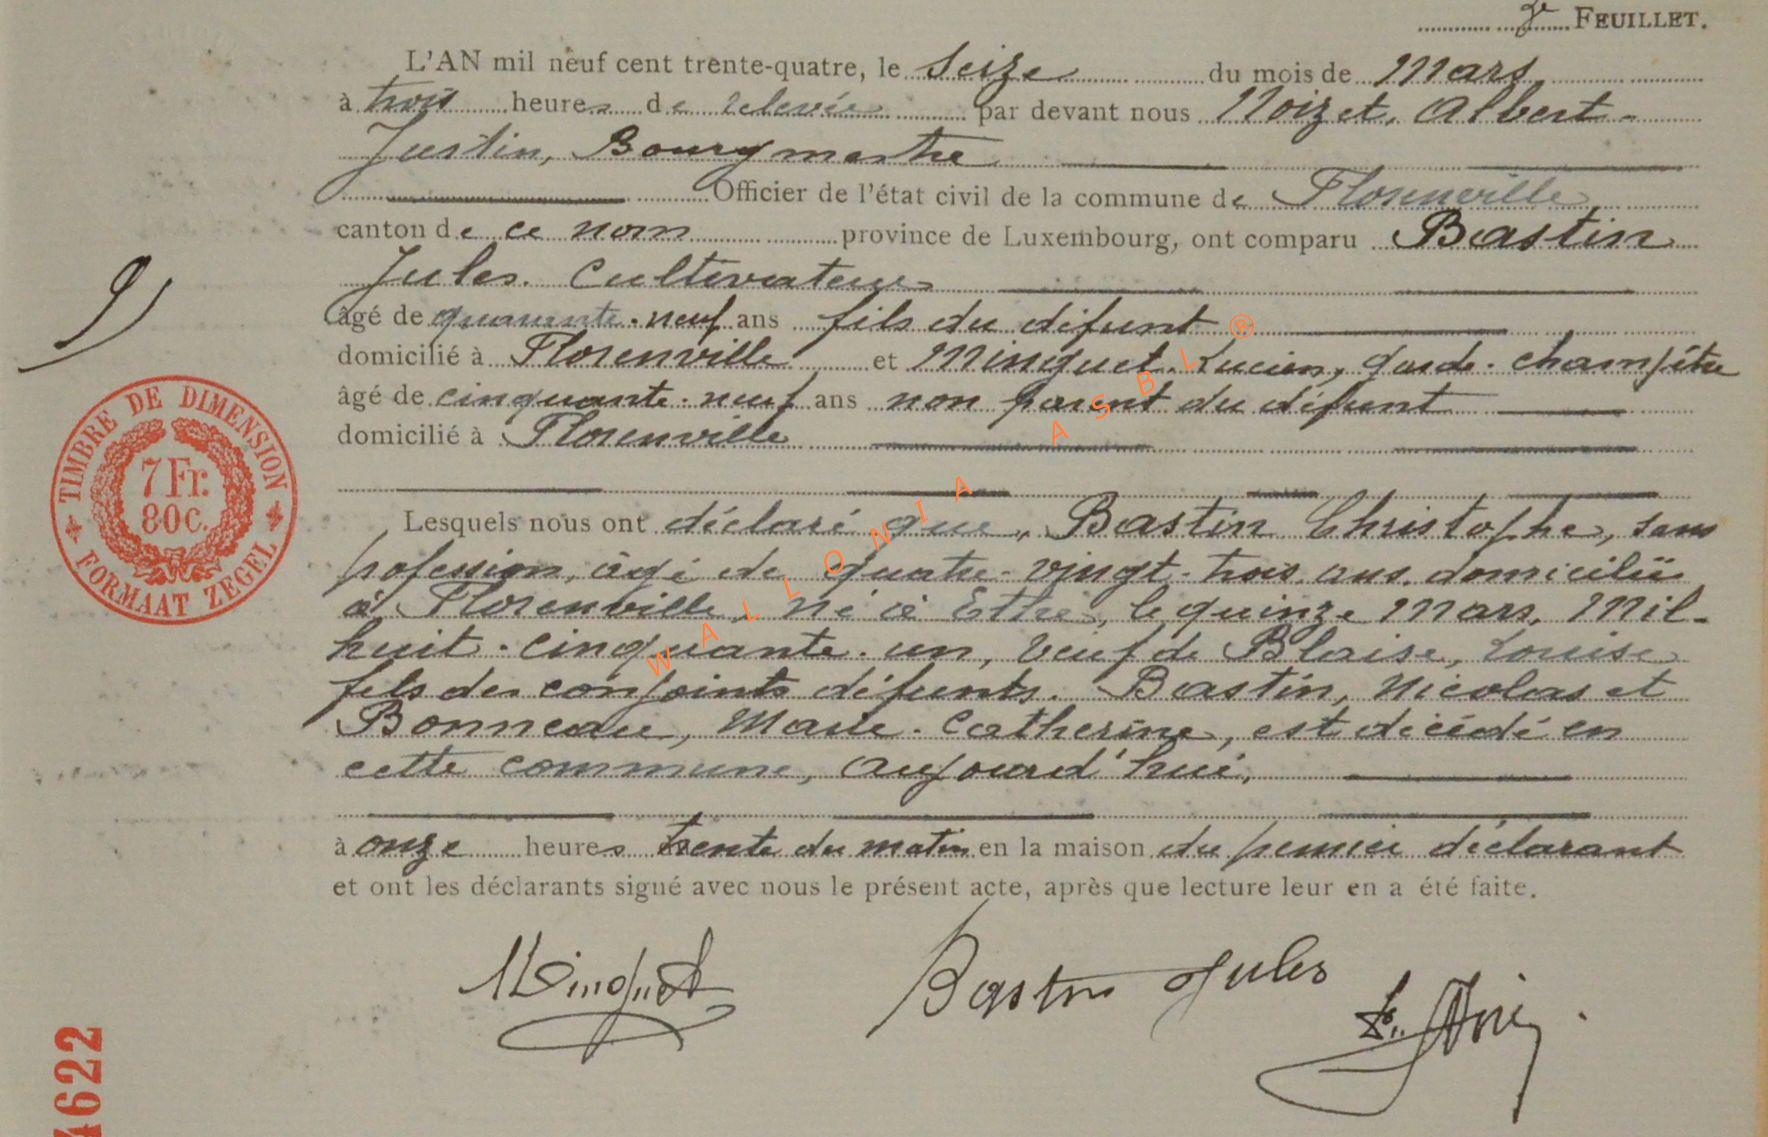 2e FEUILLET.
L'AN mil neuf cent trente-quatre, le seize du mois de Mars
à trois heures de relevée par devant nous Noizet, Albert-
Justin, Bourgmestre
Officier de l'état civil de la commune de Florenville
canton de ce nom province de Luxembourg, ont comparu Bastin
Jules. Cultivateur
âgé de quarante-neuf ans fils du défunt
domicilié à Florenville et Minguet. Lucien, garde-champêtre
âgé de cinquante-neuf ans non parent du défunt
domicilié à Florenville
Lesquels nous ont déclaré que, Bastin Christophe, sans
profession, âgé de quatre-vingt-trois ans. domicilié
à Florenville, né à Ethe, le quinze Mars, Mil-
huit-cinquante-un, veuf de Blaise, Louise
fils des conjoints défunts. Bastin, Nicolas et
Bonneau, Marie-Catherine, est décédé en
cette commune, aujourd'hui,
à onze heures trente du matin en la maison du premier déclarant
et ont les déclarants signé avec nous le présent acte, après que lecture leur en a été faite.
Minguet Bastin Jules
9)
TIMBRE DE DIMENSION
7 Fr.
80c.
FORMAAT ZEGEL
4622
WALLONIA ASBL ®